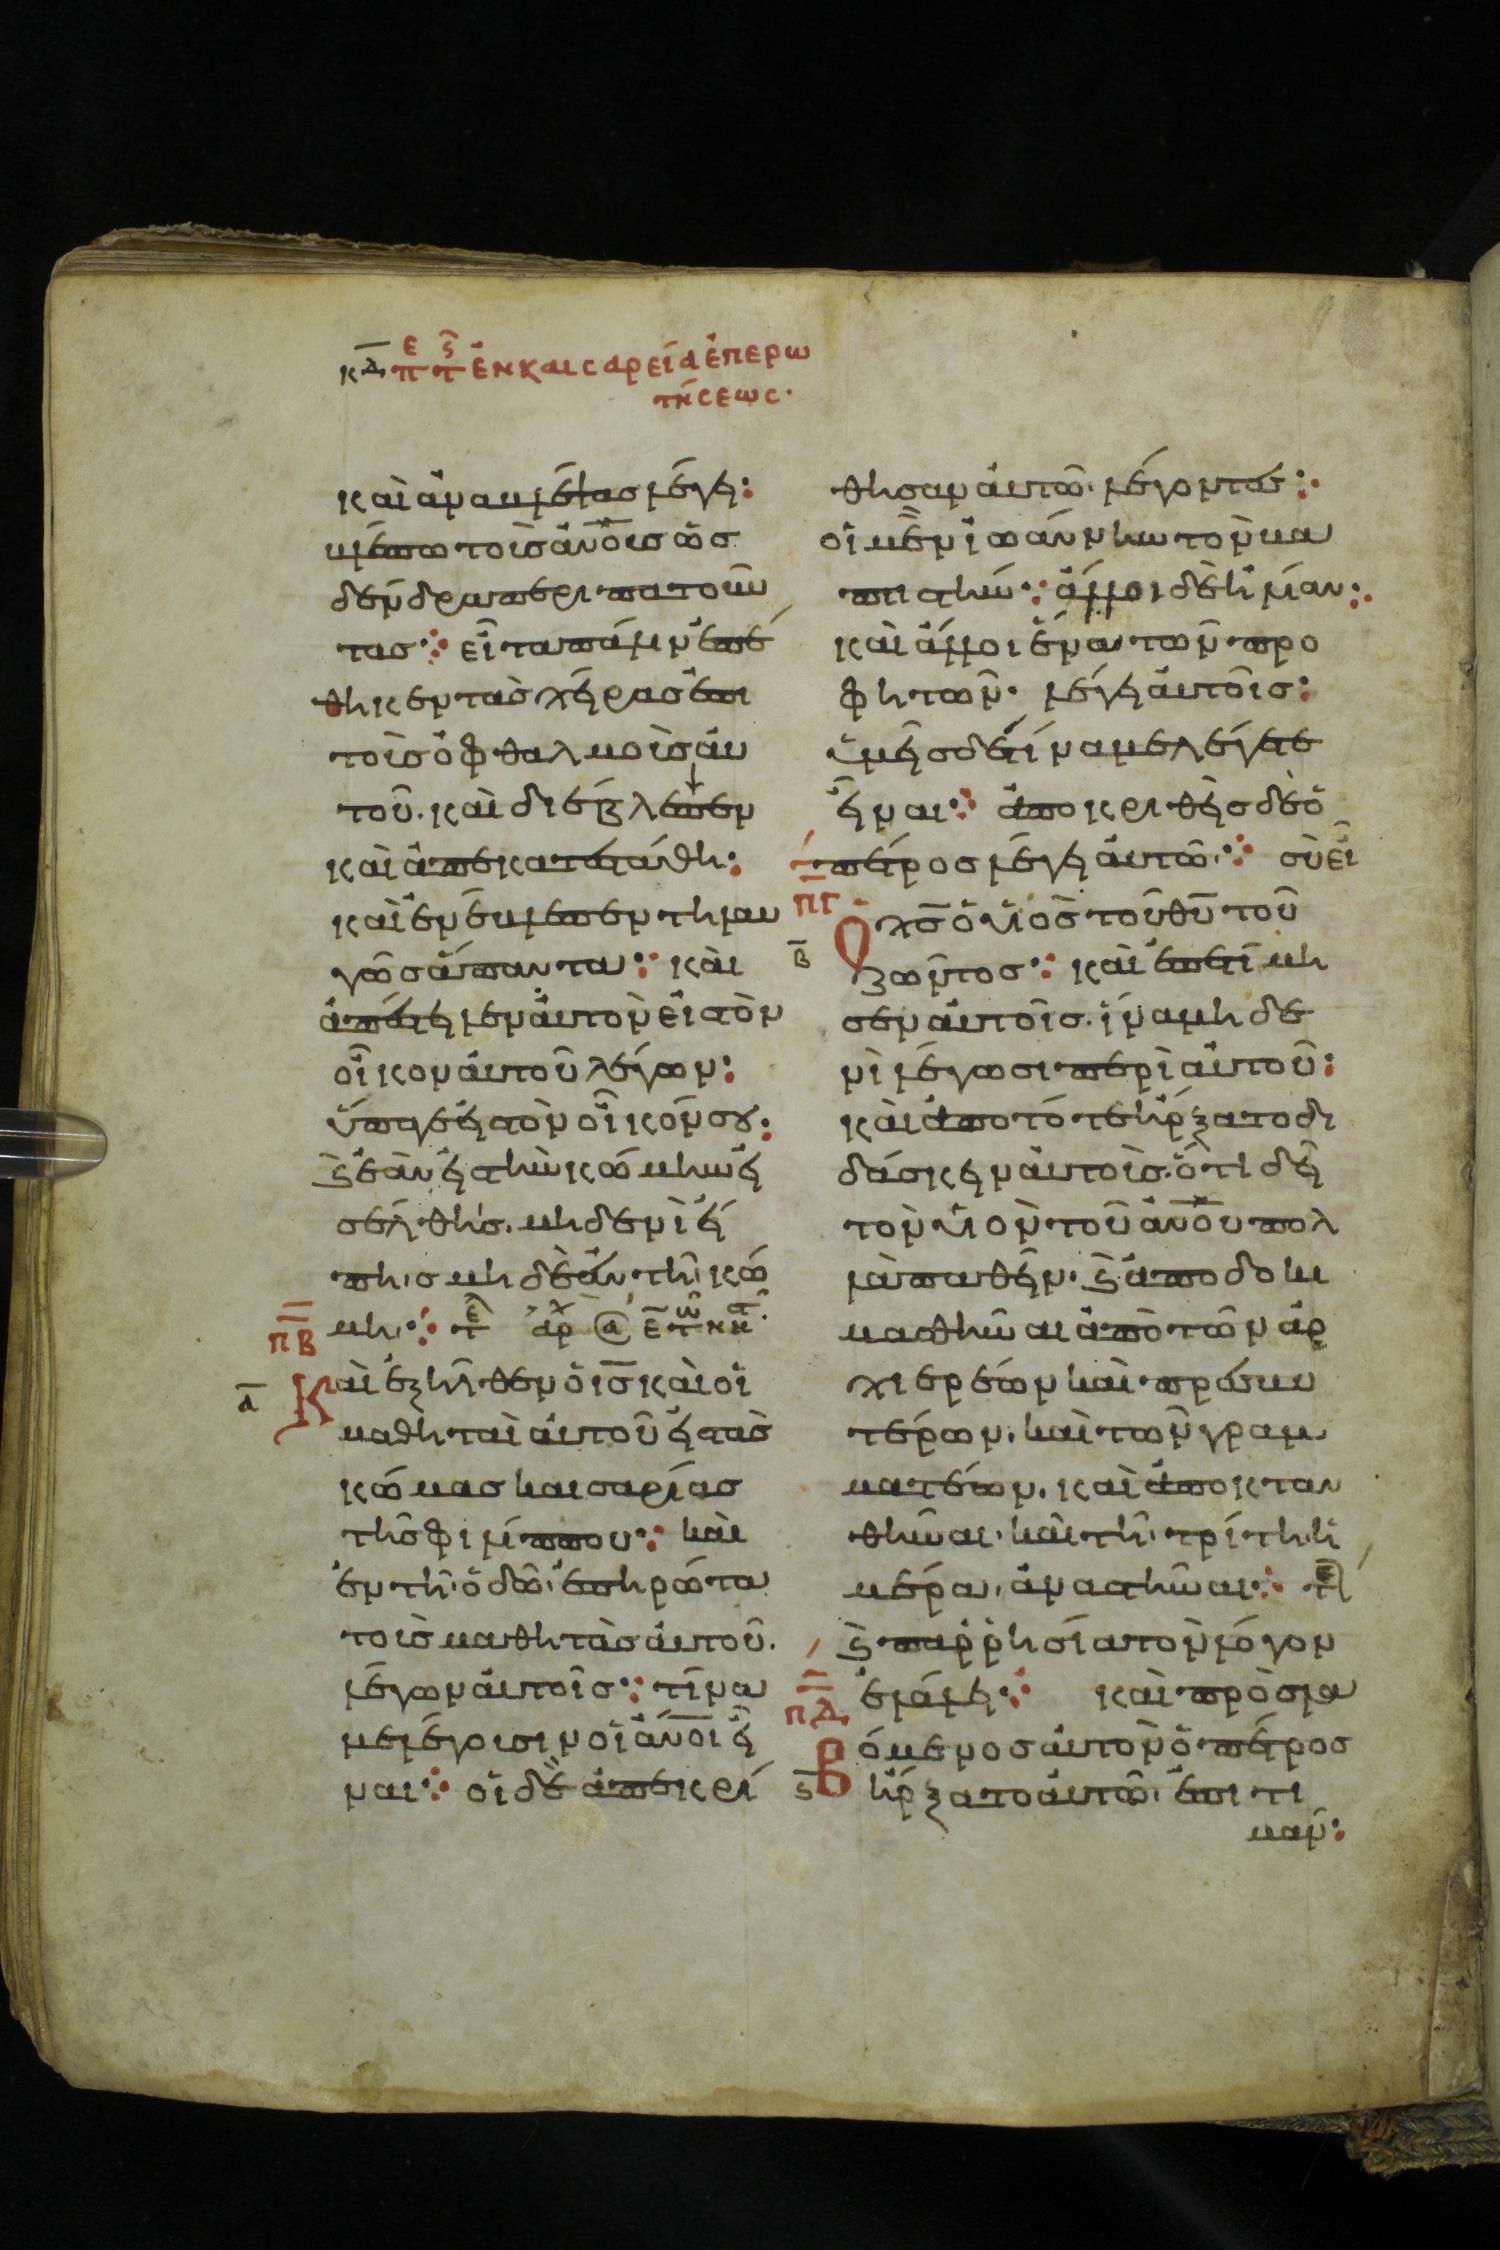 κδ πε τς ἐν καισαρεία ἐπερω
τήσεως·
καὶ ἀναβλέψας λέγει:
βλέπω τοὺς ἀνο̅υς ὡς
δένδρα περιπατοῦν
τας: εἶτα πάλιν ἐπέ
θηκεν τὰς χεῖρας ἐπι
τοὺς ὀφθαλμοὺς αὐ
τοῦ. καὶ διέβλεψεν
καὶ ἀπεκατεστάθη:
καὶ ἐνέβλεπεν τηλαυ
γῶς ἅπαντα: καὶ
ἀπέστειλεν αὐτὸν εἰς τὸν
οἶκον αὐτοῦ λέγων:
ὕπαγε εἰς τὸν οἶκόν σου:
ϗ ἐὰν εἰς τὴν κώμην εἰ
σέλθης. μηδενὶ εἴ
πης μηδὲ ἐν τῆ κώ
μη: τε ἀρχ
ΠΒ
Καὶ ἐξῆλθεν ὁ ις̅ καὶ οἱ
α
μαθηταὶ αὐτοῦ εἰς τὰς
κώμας καισαρίας
τῆς φιλίππου: καὶ
ἐν τῆ ὁδῶ ἐπηρώτα
τοὺς μαθητὰς αὐτοῦ.
λέγων αὐτοῖς: τίνα
με λέγουσιν οἱ ἀνο̅ι εἶ
ναι: οἱ δὲ ἀπεκρί
θησαν αὐτῶ λέγοντες:
οἱ μὲν ἰωάννην τὸν βα
πτιστήν: ἄλλοι δὲ ἠλίαν:
καὶ ἄλλοι ἕνα τῶν προ
φητῶν· λέγει αὐτοῖς:
ὑμεῖς δὲ τίνα με λέγετε
εἶναι: ἀποκριθεὶς δὲ ὁ
πέτρος λέγει αὐτῶ: σὺ εἶ
ΠΓ
Ὁ χς̅ ὁ υἱὸς τοῦ θυ̅ τοῦ
β
ζῶντος: καὶ ἐπετίμη
σεν αὐτοῖς. ἵνα μηδε
νὶ λέγωσι περὶ αὐτοῦ:
καὶ ἀπὸ τότε ἤρξατο δι
δάσκειν αὐτοὺς. ὅτι δεῖ
τὸν υἱὸν τοῦ ἀνο̅υ πολ
λὰ παθεῖν. ϗ ἀποδοκι
μασθῆναι ἀπὸ τῶν ἀρ
χιερέων καὶ πρεσβυ
τέρων. καὶ τῶν γραμ
ματέων. καὶ ἀποκταν
θῆναι. καὶ τῆ τρίτη ἡ
μέρα, ἀναστῆναι: τε
ϗ παῤῥησία τὸν λόγον
ἐλάλει: καὶ προσλα
ΠΔ
Βόμενος αὐτὸν ὁ πέτρος
ς
ἤρξατο αὐτῶ ἐπιτι
μαν: